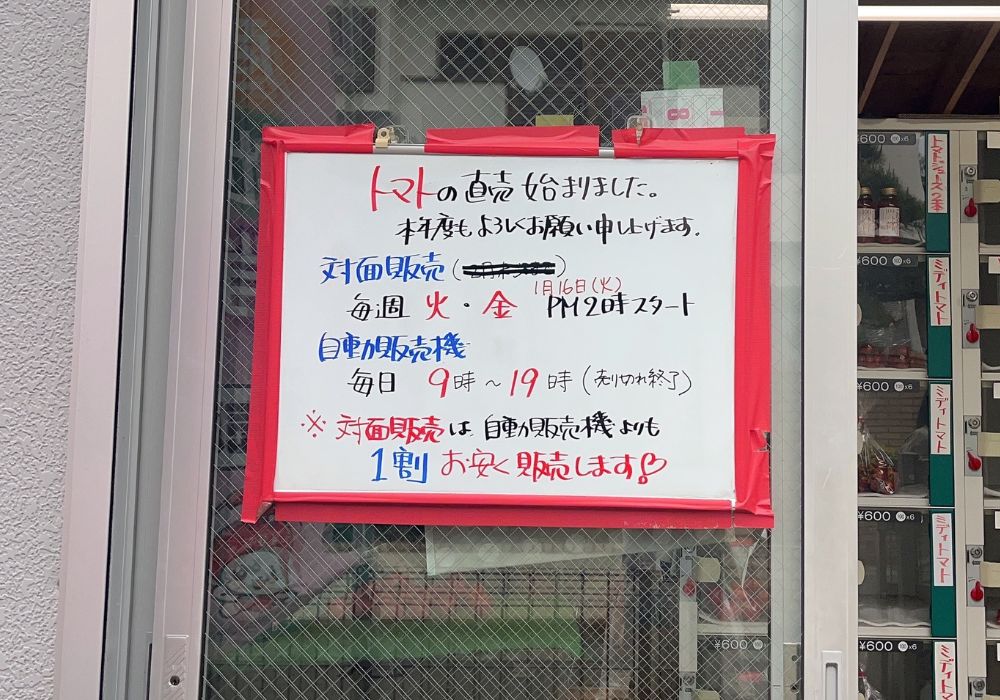 トマトの直売始まりました。
本年度もよろしくお願い申し上げます。
対面販売
1月16日(火)
毎週 火・金 PM2時スタート
自動販売機
毎日 9時～19時(売り切れ終了)
※対面販売は自動販売機よりも
1割お安く販売します
¥600 100x6
トマトジュース2本
¥600 100x6
ミディトマト
¥600 100x6
ミディトマト
¥600 100x6
ミディトマト
¥600 100x6
ミディトマト
¥600